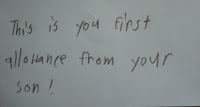 This is you first
allowance from your
son!